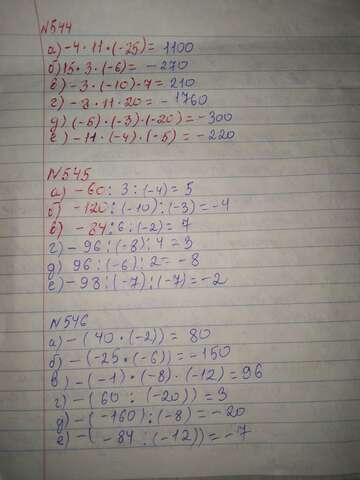 №544
а) -4 · 11 · (-25) = 1100
б) 15 · 3 · (-6) = -270
в) -3 · (-10) · 7 = 210
г) -8 · 11 · 20 = -1760
д) (-5) · (-3) · (-20) = -300
е) -11 · (-4) · (-5) = -220
№545
а) -60 : 3 : (-4) = 5
б) -120 : (-10) : (-3) = -4
в) -84 : 6 : (-2) = 7
г) -96 : (-8) : 4 = 3
д) 96 : (-6) : 2 = -8
е) -98 : (-7) : (-7) = -2
№546
а) -(40 · (-2)) = 80
б) -(-25 · (-6)) = -150
в) -(-1) · (-8) · (-12) = 96
г) -(60 : (-20)) = 3
д) -(-160) : (-8) = -20
е) -(-84 : (-12)) = -7